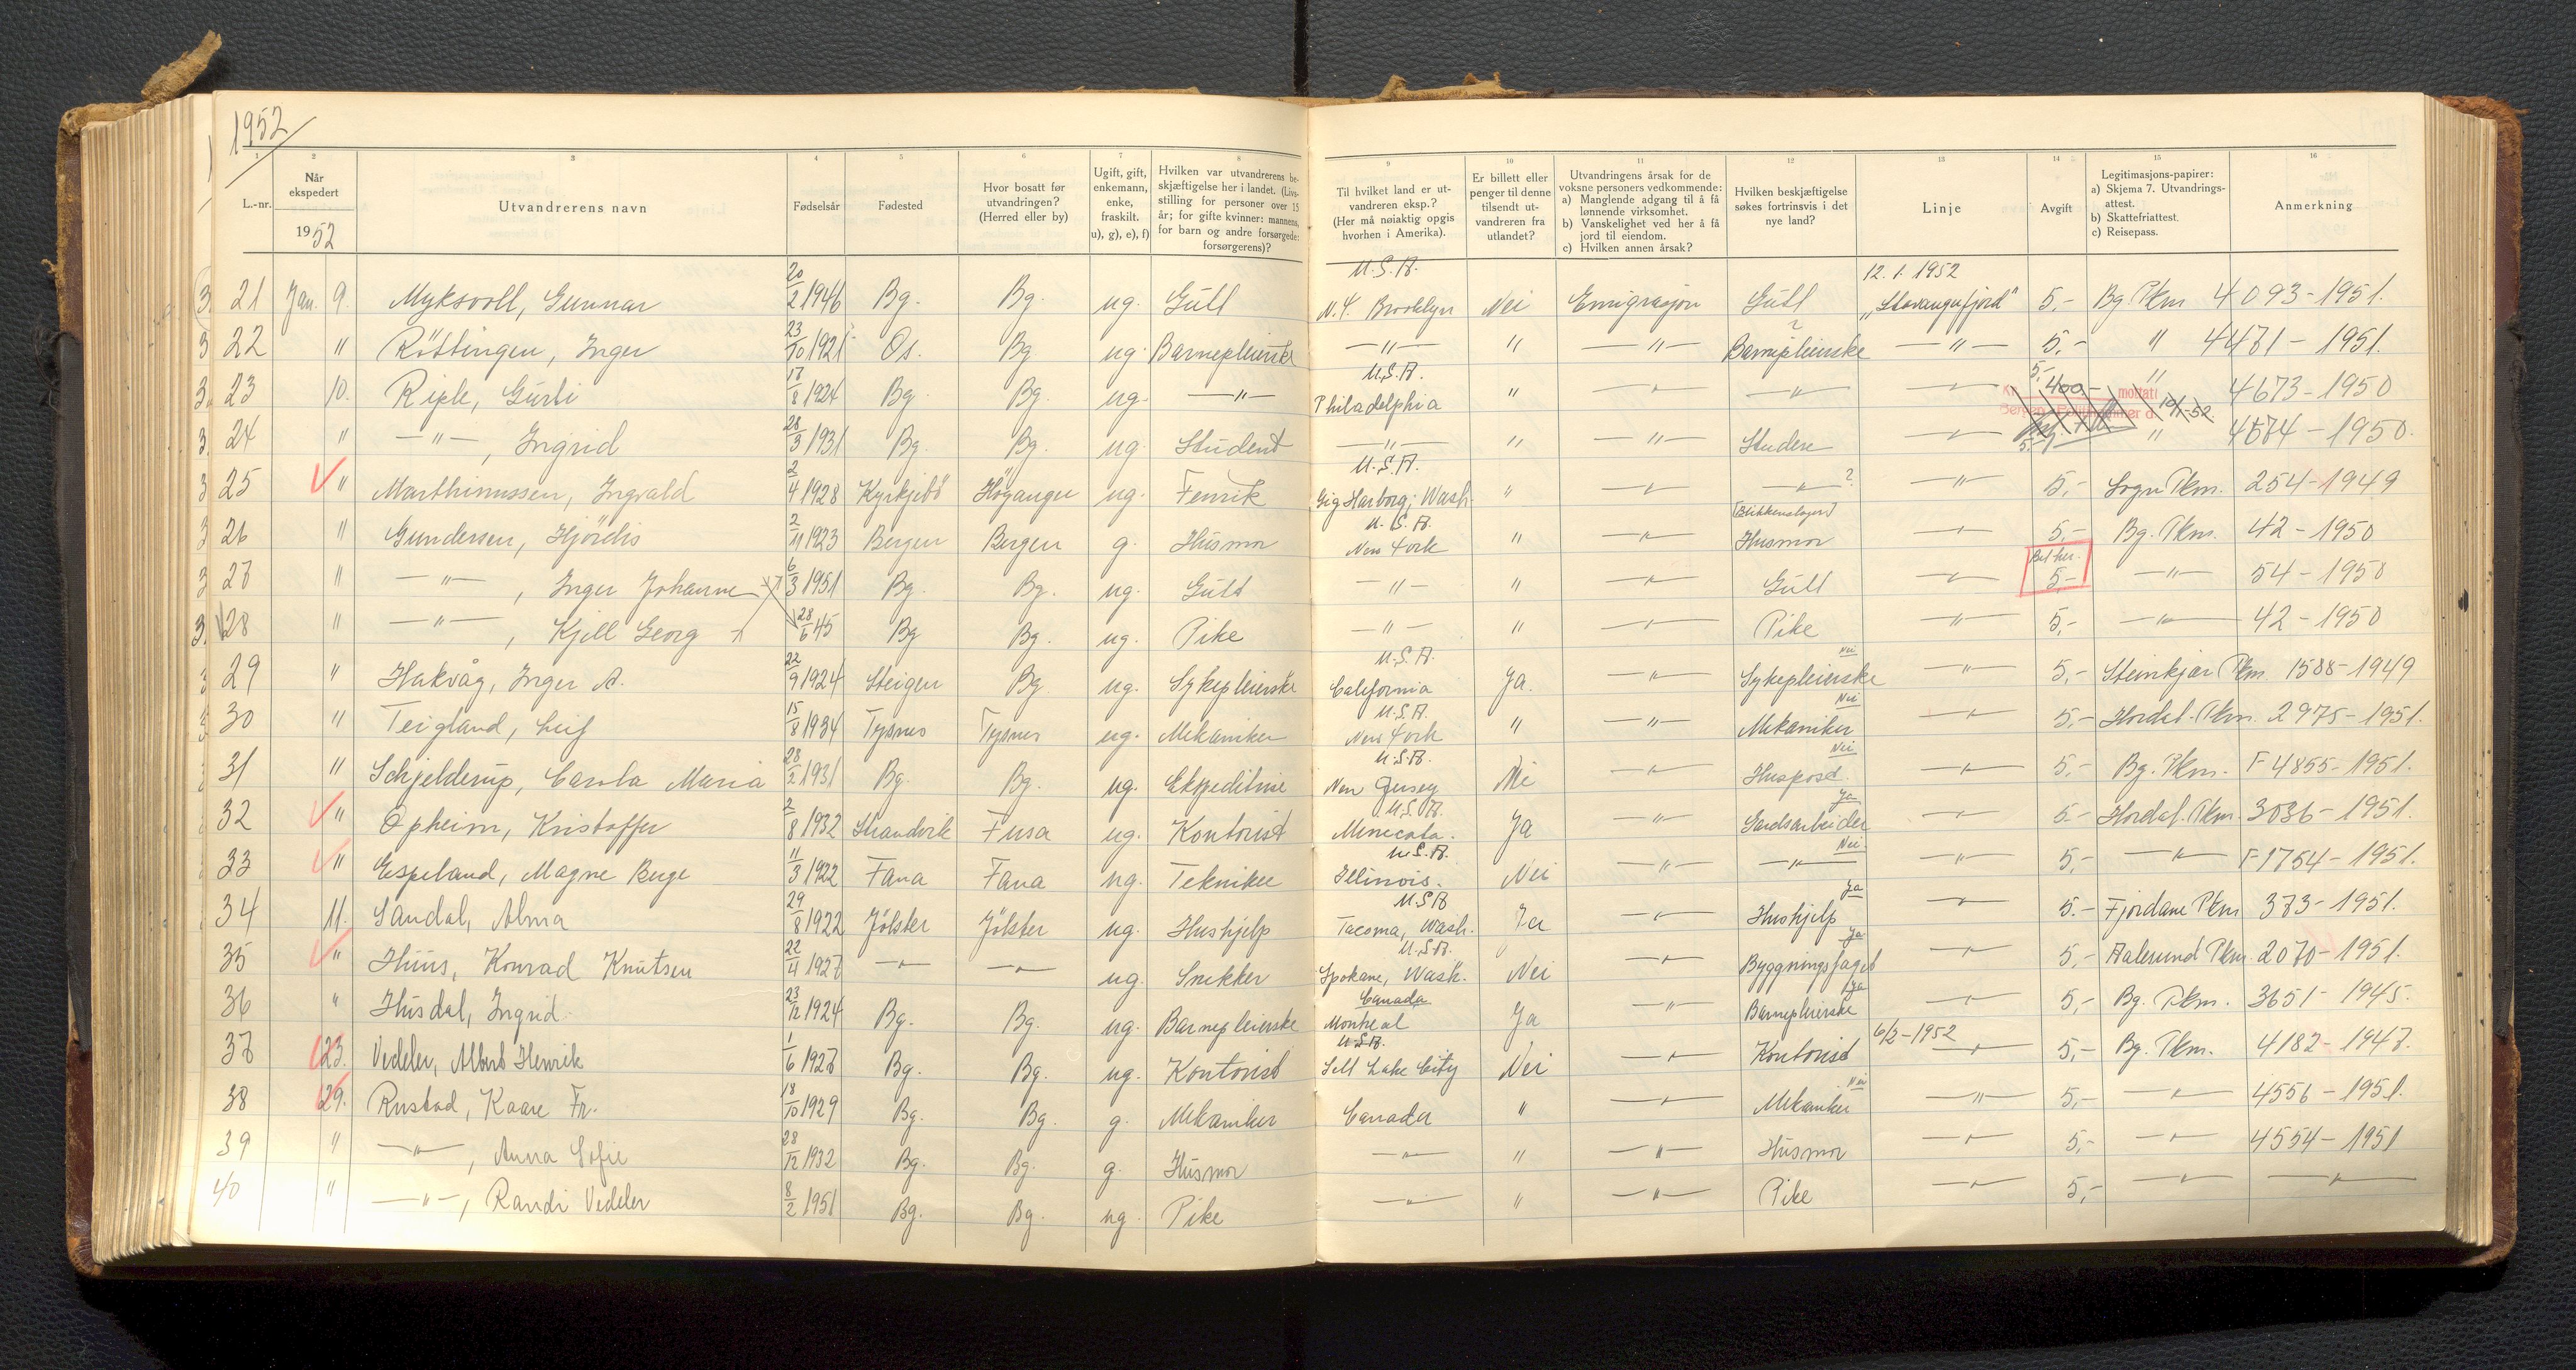 1952
1 2 3 4 5 6 7 8 9 10 11 12 13 14 15 16
L.-nr.
Når ekspedert
1952
Utvandrerens navn
Fødselsår
Fødested
Hvor bosatt før utvandringen? (Herred eller by)
Ugift, gift, enkemann, enke, fraskilt. u), g), e), f)
Hvilken var utvandrerens beskjæftigelse her i landet. (Livsstilling for personer over 15 år; for gifte kvinner: mannens, for barn og andre forsørgede: forsørgerens)?
Til hvilket land er utvandreren eksp.? (Her må nøiaktig opgis hvorhen i Amerika).
Er billett eller penger til denne tilsendt utvandreren fra utlandet?
Utvandringens årsak for de voksne personers vedkommende: a) Manglende adgang til å få lønnende virksomhet. b) Vanskelighet ved her å få jord til eiendom. c) Hvilken annen årsak?
Hvilken beskjæftigelse søkes fortrinsvis i det nye land?
Linje
Avgift
Legitimasjons-papirer: a) Skjema 7. Utvandringsattest. b) Skattefriattest. c) Reisepass.
Anmerkning
21 Jan. 9. Myksvoll, Gunnar 20/2 1946 Bg. Bg. ug. Gutt U.S.A. N.Y. Brooklyn Nei Emigrasjon Gutt 12.1.1952 "Stavangerfjord" 5,- Bg. Pkm 4093-1951.
22 " Röttingen, Inger 23/10 1921 Os. Bg ug. Barnepleierske —"— " —"— Barnepleierske —"— 5,- " 4471-1951.
23 10. Riple, Gurli 17/8 1924 Bg. Bg. ug. —"— U.S.A. Philadelphia " —"— —"— —"— 5,- " 4673-1950
24 " —"—, Ingrid 28/3 1931 Bg. Bg. ug. Student —"— " —"— Studere —"— 5,- " 4674-1950.
25 " Marthinussen, Ingvald 2/4 1928 Kyrkjebö Höyanger ug. Fenrik U.S.A. Gig Harborg, Wash. " —"— —"— ? —"— 5,- Sogn Pkm. 254-1949
26 " Gundersen, Hjördis 2/11 1923 Bergen Bergen g. Husmor U.S.A. New York " —"— (Blikkenslager) Husmor —"— 5,- Bg. Pkm. 42-1950
27 " —"—, Inger Johanne 6/3 1951 Bg. Bg. ug. Gutt —"— " —"— Gutt —"— 5,- —"— 54-1950
28 " —"—, Kjell Georg 28/6 45 Bg Bg. ug. Pike —"— " —"— Pike —"— 5,- —"— 42-1950
29 " Hakvåg, Inger A. 22/9 1924 Steigen Bg ug. Sykepleierske U.S.A. California Ja. —"— Nei Sykepleierske —"— 5,- Steinkjær Pkm. 1588-1949
30 " Teigland, Leif 15/8 1934 Tysnes Tysnes ug. Mekaniker U.S.A. New York " —"— Nei Mekaniker —"— 5,- Hordal. Pkm. 2975-1951.
31 " Schjelderup, Carola Maria 28/2 1931 Bg. Bg. ug. Ekspeditrise U.S.A. New Jersey Nei —"— Nei Huspost. —"— 5,- Bg. Pkm. F 4855-1951.
32 " Opheim, Kristoffer 2/8 1932 Strandvik Fusa ug. Kontorist U.S.A. Minecota. Ja —"— Ja Gardsarbeider —"— 5,- Hordal. Pkm. 3036-1951.
33 " Espeland, Magne Berge 11/3 1922 Fana Fana ug. Tekniker U.S.A. Illinois. Nei —"— Nei —"— —"— 5,- —"— F 1754-1951.
34 11. Sandal, Alma 29/8 1922 Jölster Jölster ug. Hushjelp U.S.A Tacoma, Wash. Ja —"— Ja Hushjelp —"— 5.- Fjordane Pkm 373-1951.
35 " Huus, Konrad Knutsen 22/4 1927 —"— —"— ug. Snekker U.S.A. Spokane, Wash. Nei —"— Ja Byggningsfaget —"— 5,- Aalesund Pkm. 2070-1951.
36 " Husdal, Ingrid 23/12 1924 Bg. Bg. ug. Barnepleierske Canada Montreal Ja —"— Ja Barnepleierske —"— 5,- Bg. Pkm. 3651-1945.
37 23. Vedeler, Albert Henrik 1/6 1927 Bg. Bg. ug. Kontorist U.S.A. Salt Lake City Nei —"— Kontorist 6/2-1952 —"— 5,- Bg. Pkm. 4182-1947.
38 29. Rustad, Kaare Fr. 18/10 1929 Bg. Bg. g. Mekaniker Canada " —"— Nei Mekaniker —"— 5,- —"— 4556-1951.
39 " —"—, Anna Sofie 28/12 1932 Bg. Bg. g. Husmor —"— " —"— Husmor —"— 5,- —"— 4554-1951
40 " —"—, Randi Vedeler 8/2 1951 Bg. Bg. ug. Pike —"— " —"— Pike —"— 5,- —"— —"—